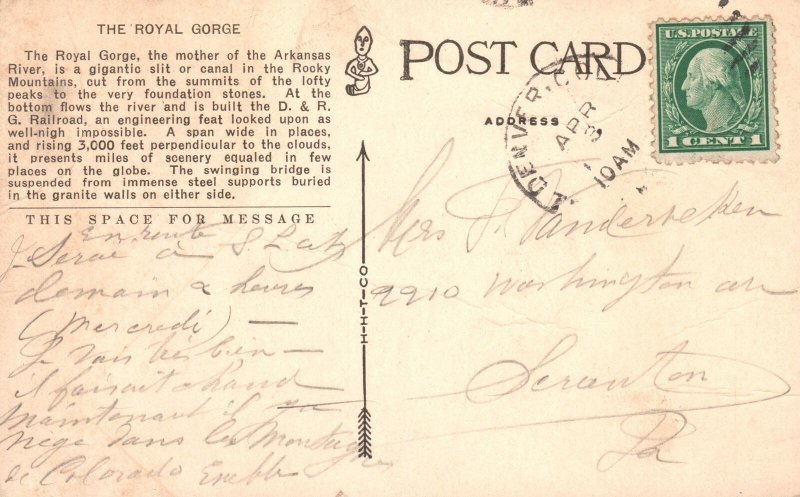 THE ROYAL GORGE
The Royal Gorge, the mother of the Arkansas
River, is a gigantic slit or canal in the Rocky
Mountains, cut from the summits of the lofty
peaks to the very foundation stones. At the
bottom flows the river and is built the D. & R.
G. Railroad, an engineering feat looked upon as
well-nigh impossible. A span wide in places,
and rising 3,000 feet perpendicular to the clouds,
it presents miles of scenery equaled in few
places on the globe. The swinging bridge is
suspended from immense steel supports buried
in the granite walls on either side.
THIS SPACE FOR MESSAGE
En route
Serai à S. Lak
demain 2 heures
(Mercredi) —
Je vais très bien —
il faisait chaud
maintenant il
neige dans les Montagnes
de Colorado
H-H-T-CO
POST CARD
ADDRESS
DENVER, COL.
APR
10 AM
U.S. POSTAGE
1 CENT 1
Mrs Vanderveken
2210 Washington ave
Scranton
Pa